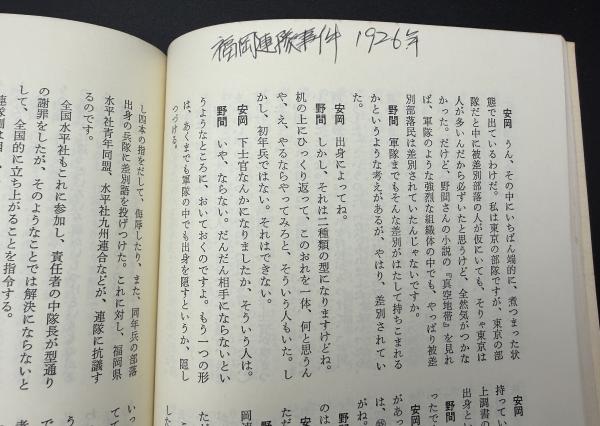 福岡連隊事件 1926年
安岡 うん、その中にいちばん端的に、煮つまった状
態で出ているわけだ。私は東京の部隊ですが、東京の部
隊だと中に被差別部落の人が仮にいても、そりゃ東京は
人が多いんだから必ずいたと思うけど、全然気がつかな
かった。だけど、野間さんの小説の『真空地帯』を見れ
ば、軍隊のような強烈な組織体の中でも、やっぱり被差
別部落民は差別されていたんじゃないですか。
野間 軍隊までもそんな差別がはたして持ちこまれる
かというような考えがあるが、やはり、差別されてい
た。
安岡 出身によってね。
野間 しかし、それは二種類の型になりますけどね。
机の上にひっくり返って、このおれを一体、何と思うん
や、え、やるならやってみろと、そういう人もいた。し
かし、初年兵ではない。それはできない。
安岡 下士官なんかになりましたか、そういう人は。
野間 いや、ならない。だんだん相手にならないとい
うようなところに、おいておくのですよ。もう一つの形
は、あくまでも軍隊の中でも出身を隠すというか、隠し
つづける。
安岡
持ってい
上調書の
出身とい
野間
安岡
があっ
がね。
野間
のは
ただ
し四本の指をだして、侮辱したり、また、同年兵の部落
出身の兵隊に差別語を投げつけた。これに対し、福岡県
水平社青年同盟、水平社九州連合などが、連隊に抗議す
るのです。
全国水平社もこれに参加し、責任者の中隊長が型通り
の謝罪をしたが、そのようなことでは解決にならないと
して、全国的に立ち上がることを指令する。